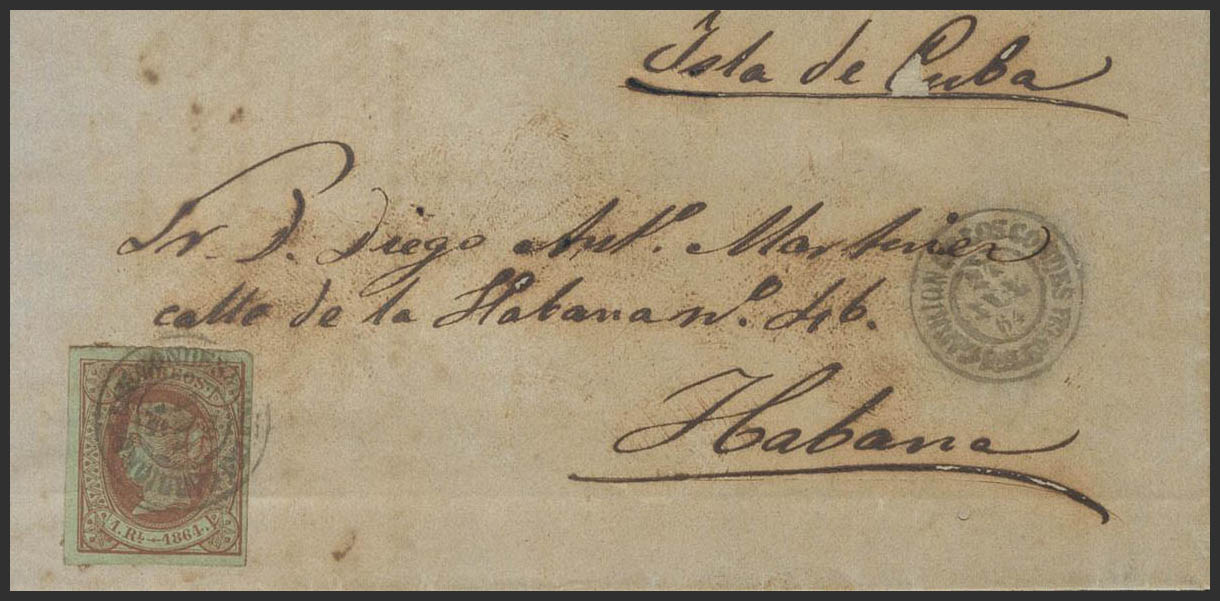 Isla de Cuba
Sr. D. Diego Antº. Martinez
calle de la Habana nº. 46.
Habana
CORREOS
1. Rl. 1864.
64